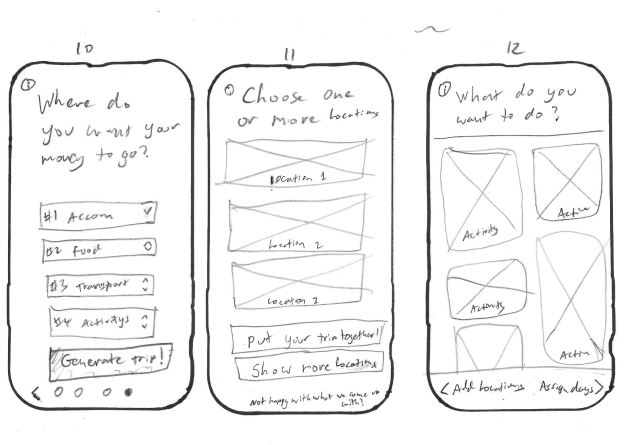 10
i
Where do
you want your
money to go?
#1 Accom
#2 Food
#3 Transport
#4 Activitys
Generate trip!
<
11
i
Choose one
or more Locations
Location 1
Location 2
Location 3
put your trip together!
Show more Locations
Not happy with what we came up
with?
12
i
What do you
want to do?
Activity
Active
Activity
Active
< Add Locations Assign days >